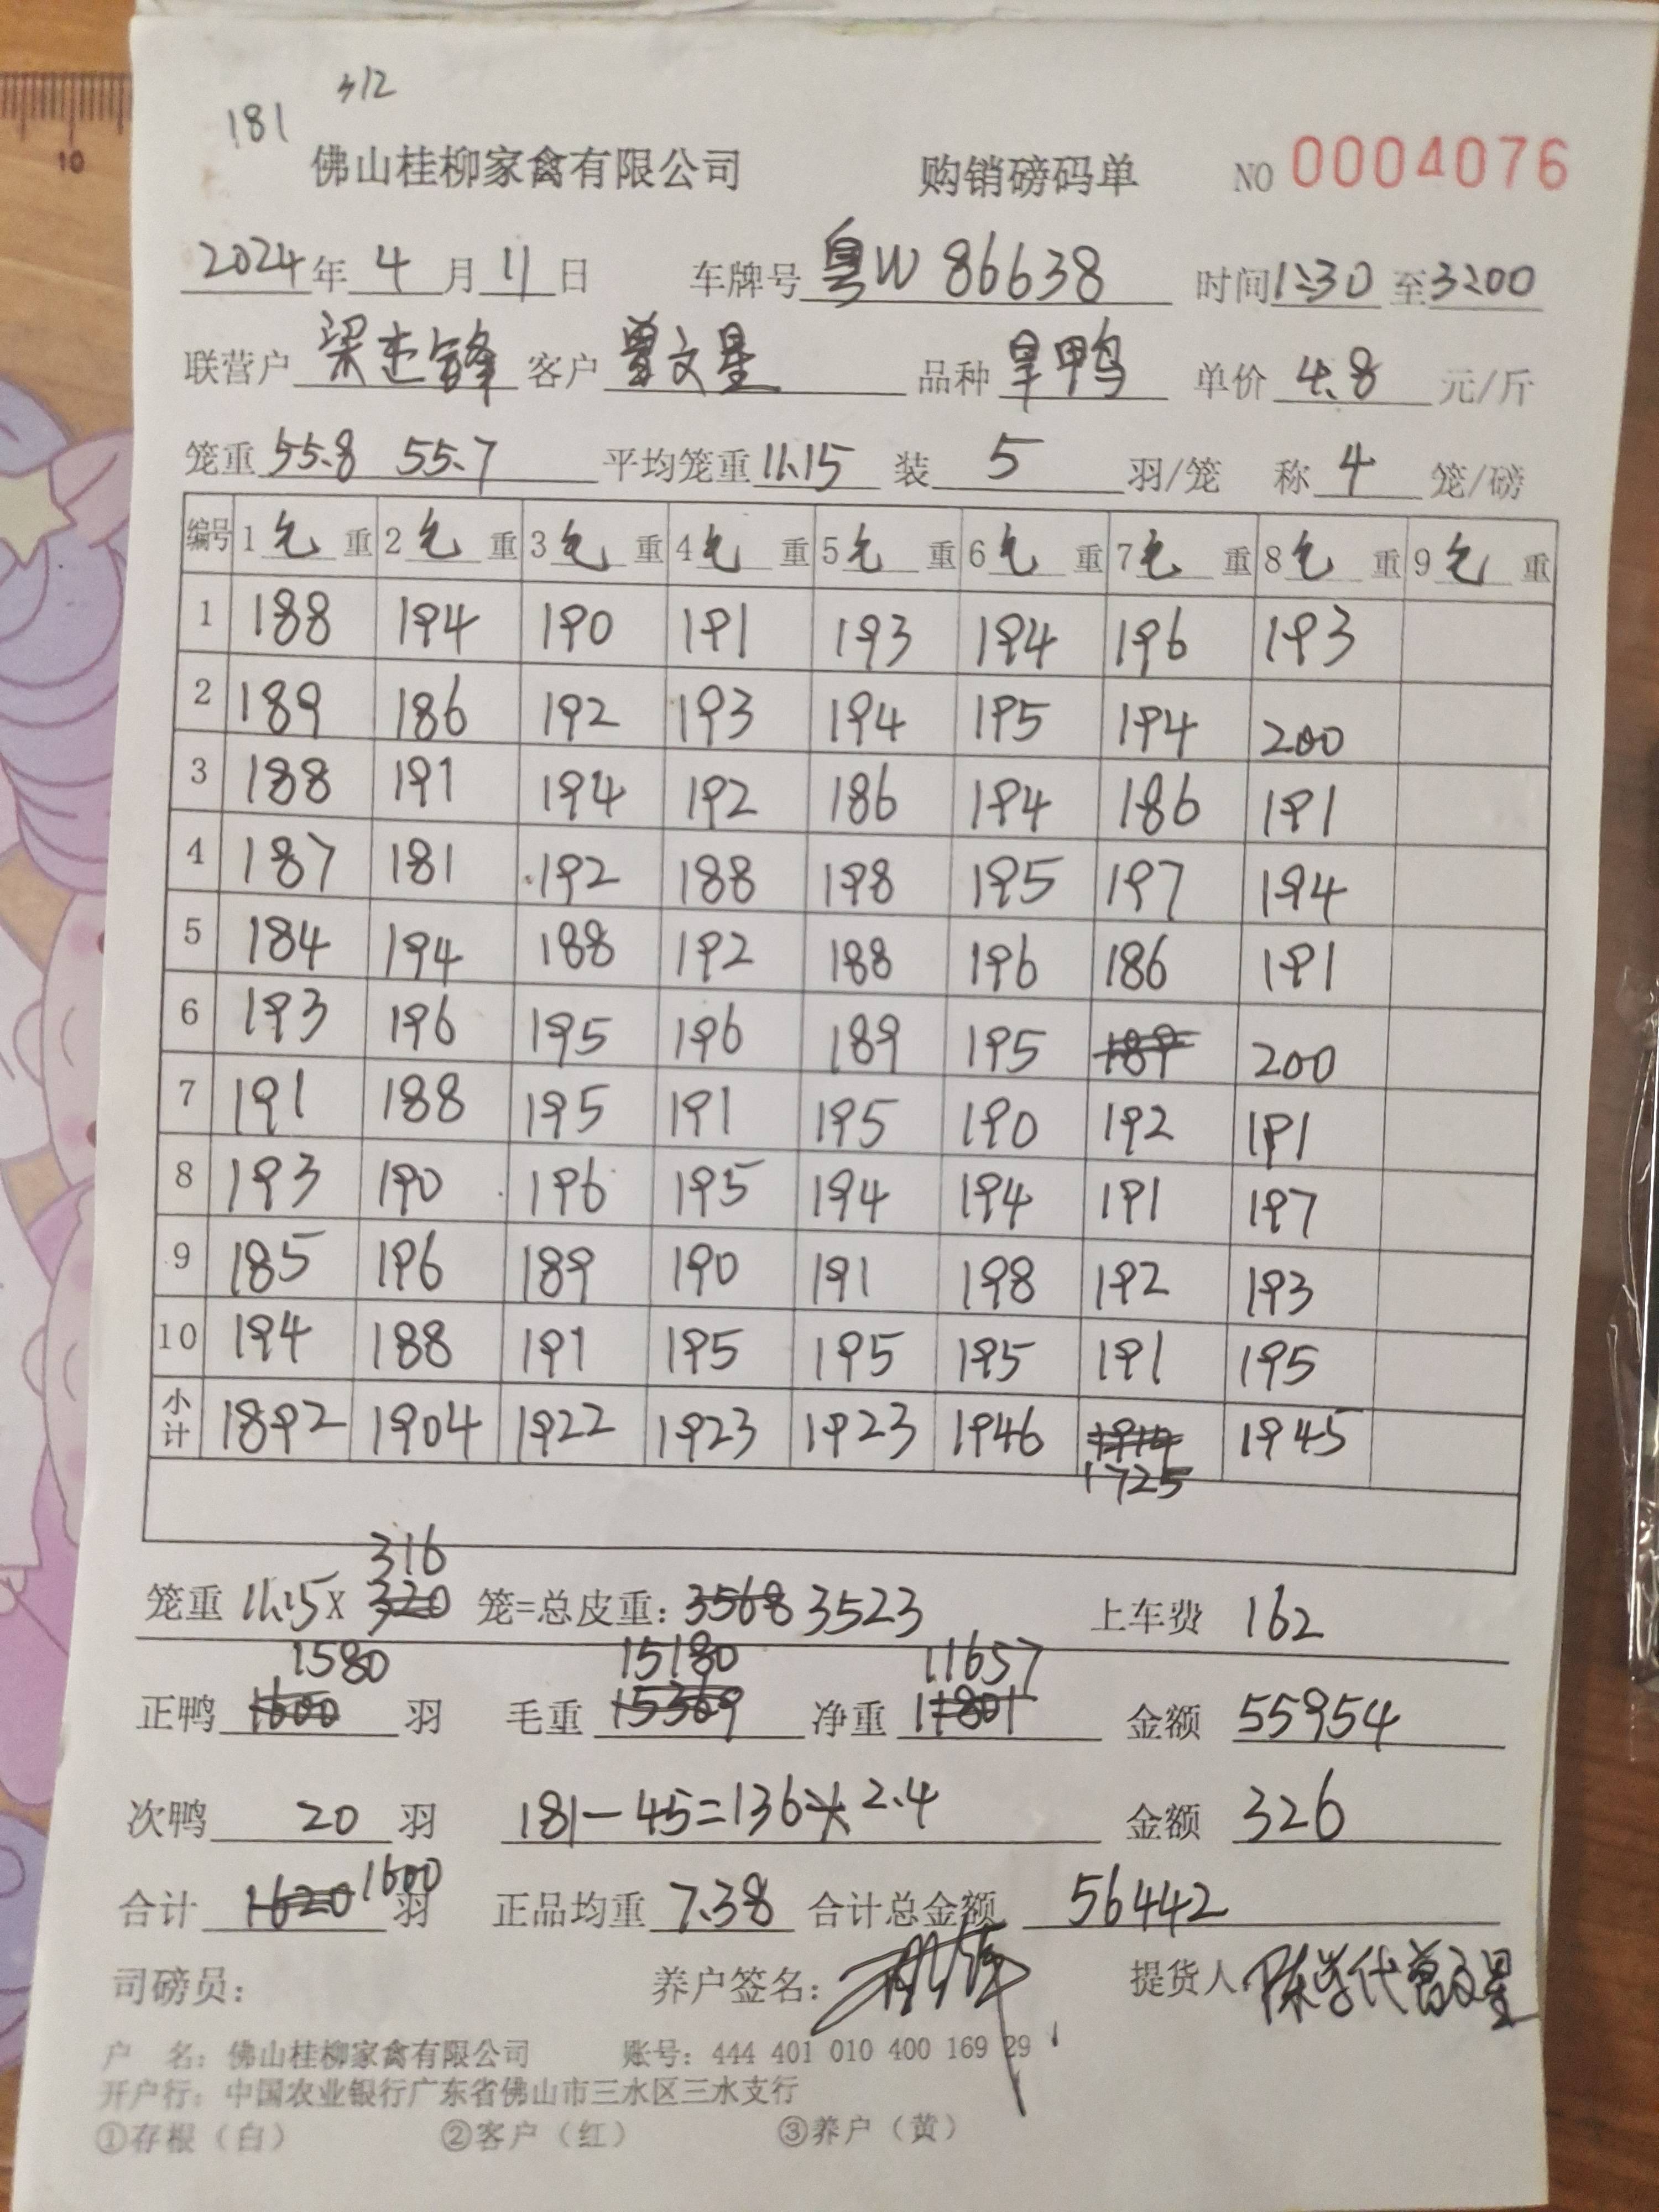 312
181
佛山桂柳家禽有限公司 购销磅码单 NO 0004076
2024年 4 月 11 日 车牌号 粤W 86638 时间 1:30 至 3:00
联营户 梁志锋 客户 曾文星 品种 旱鸭 单价 4.8 元/斤
笼重 55.8 55.7 平均笼重 11.15 装 5 羽/笼 称 4 笼/磅
编号 1 毛 重 2 毛 重 3 毛 重 4 毛 重 5 毛 重 6 毛 重 7 毛 重 8 毛 重 9 毛 重
1 188 194 190 191 193 194 196 193
2 189 186 192 193 194 195 194 200
3 188 191 194 192 186 194 186 191
4 187 181 192 188 198 195 197 194
5 184 194 188 192 188 196 186 191
6 193 196 195 196 189 195 189 200
7 191 188 195 191 195 190 192 191
8 193 190 196 195 194 194 191 197
9 185 196 189 190 191 198 192 193
10 194 188 191 195 195 195 191 195
小计 1892 1904 1922 1923 1923 1946 1914 1945
1725
316
笼重 11.15 X 320 笼=总皮重: 3568 3523 上车费 162
1580 15180 11657
正鸭 1600 羽 毛重 15369 净重 11801 金额 55954
次鸭 20 羽 181-45=136×2.4 金额 326
合计 1620 1600 羽 正品均重 7.38 合计总金额 56442
司磅员: 养户签名: 提货人 陈学代曾文星
户 名: 佛山桂柳家禽有限公司 账号: 444 401 010 400 169 29
开户行: 中国农业银行广东省佛山市三水区三水支行
①存根（白） ②客户（红） ③养户（黄）
10